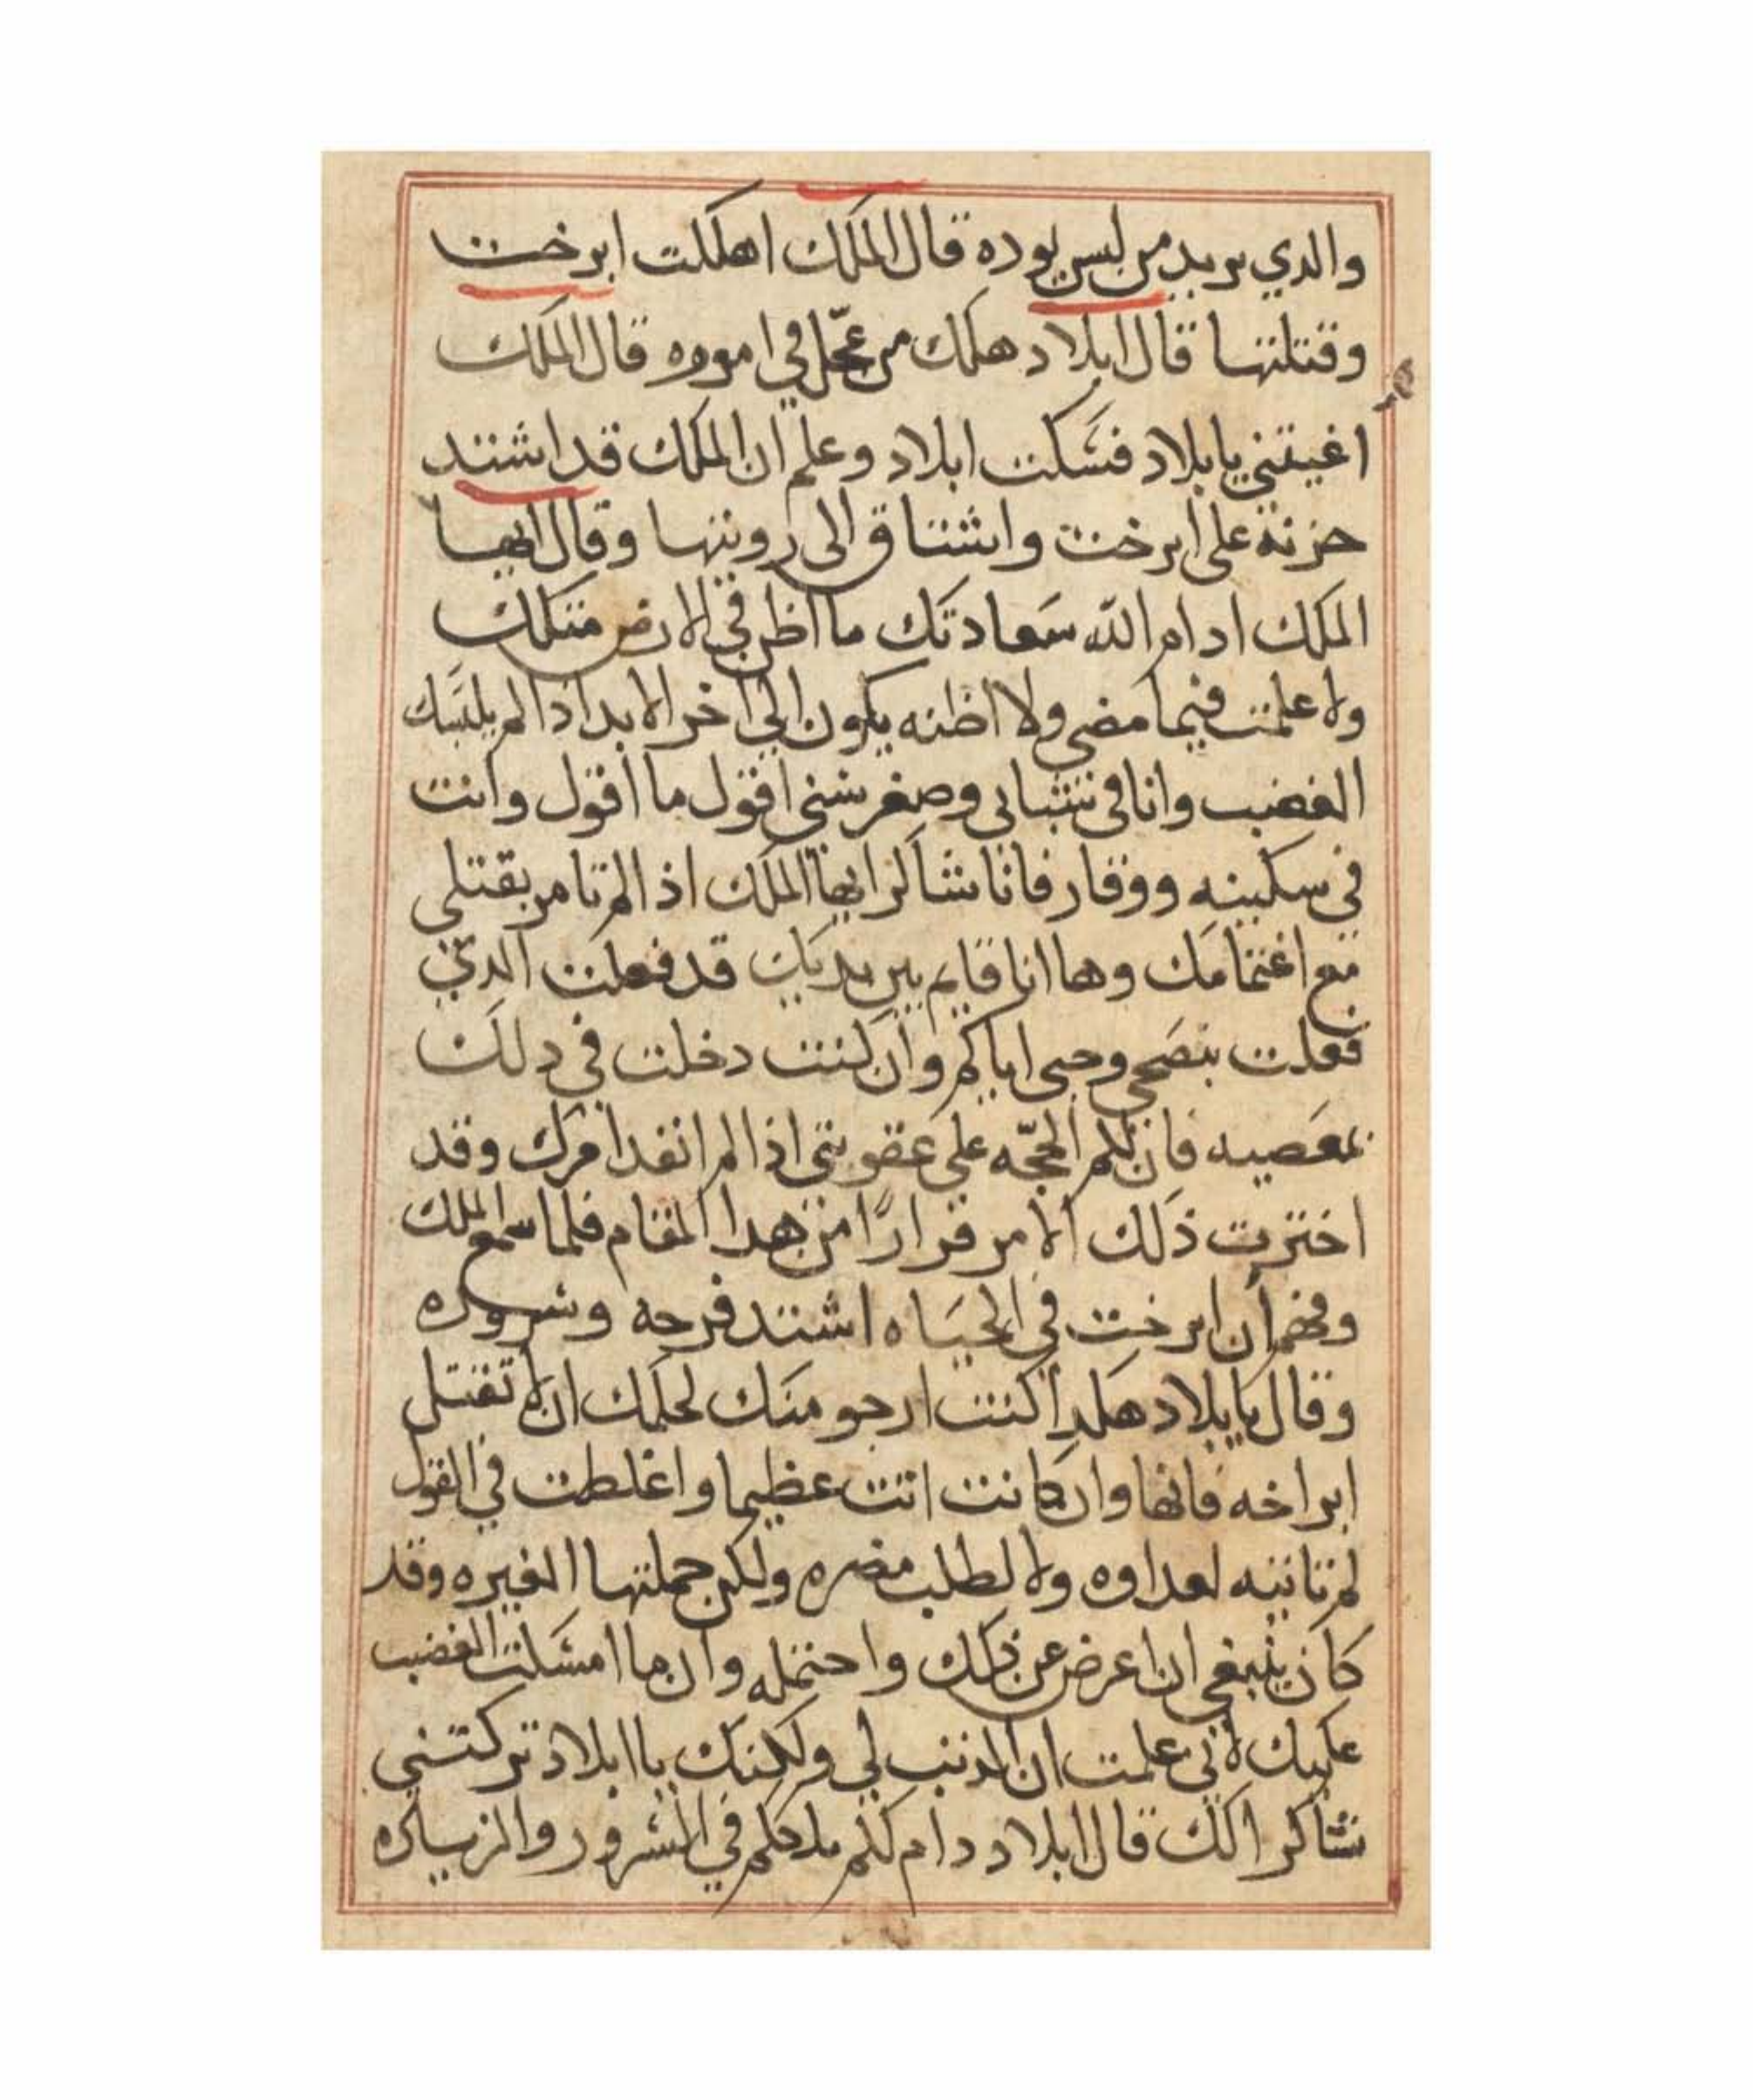 والدي يريد من ليس يوده قال الملك اهلكت ايرخت
وقتلتها قال ابلاد هلك من عجّل في اموره قال الملك
اغيفتني يابلاد فسكت ابلاد وعلم ان الملك قد اشتد
حزنه على ايرخت واشتاق الى رويتها وقال ايها
الملك ادام الله سعادتك ما اظن في الارض مثلك
ولا علمت فيما مضى ولا اظنه يكون الي اخر الابد اذ الم
الغضب وانا في شبابي وصغر سني اقول ما اقول وانت
في سكينه ووقار فانا شاكر ايها الملك اذ الم تامر بقتلي
مع اغتمامك وها انا قايم بين يديك قد فعلت الدي
فعلت بنصحي وحبي اياكم وان كنت دخلت في دلك
بمعصيه فان لكم الحجّه على عقوبتي اذ الم انفد امرك وقد
اخترت ذلك الامر فرارًا من هدا المقام فلما سمع الملك
وفهم أن ايرخت في الحياه اشتد فرحه وسروره
وقال يابلاد هكدا كنت ارجو منك لحلمك ان لا تقتل
ايراخه فانها وان كانت اتت عظيما واغلطت في القول
لم تاتيه لعداوه ولا لطلب مضره ولكن حملتها الغيره وقد
كان ينبغي ان اعرض عن ذلك واحتمله وان ما امسكت الغضب
عليك لاني علمت ان الدنب لي ولكنك يا ابلاد تركتني
شاكرا لك قال ابلاد دام لكم ملككم في السرور والزياده